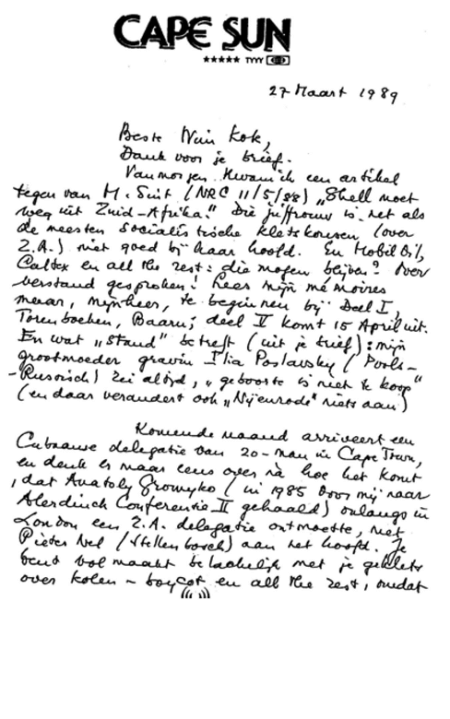 CAPE SUN
***** TYYY
27 Maart 1989
Beste Wim Kok,
Dank voor je brief.
Vanmorgen kwam ik een artikel
tegen van M. Sint (NRC 11/5/88) „Shell moet
weg uit Zuid-Afrika." Die juffrouw is net als
de meesten socialistische kletskousen (over
Z.A.) niet goed bij haar hoofd. En Mobil Oil,
Caltex en all the rest: die mogen blijven? Over
verstand gesproken! Lees mijn mémoires
meneer, te beginnen bij Deel I,
Torenboeken, Baarn; deel V komt 15 April uit.
En wat „stand" betreft (uit je brief): mijn
grootmoeder gravin Ilia Poslavsky (Pools-
-Russisch) zei altijd, „geboorte is niet te koop"
(en daar verandert ook „Nijenrode" niets aan)
Komende maand arriveert een
Cubaanse delegatie van 20-man in Cape Town,
en denk er maar eens over na hoe het komt
, dat Anatoly Gromyko (in 1985 door mij naar
Alerdinck Conferentie II gehaald) onlangs in
London een Z.A. delegatie ontmoette, met
Pieter Nel (Stellenbosch) aan het hoofd. Je
bent volmaakt belachelijk met je geklets
over kolen-boycot en all the rest, omdat